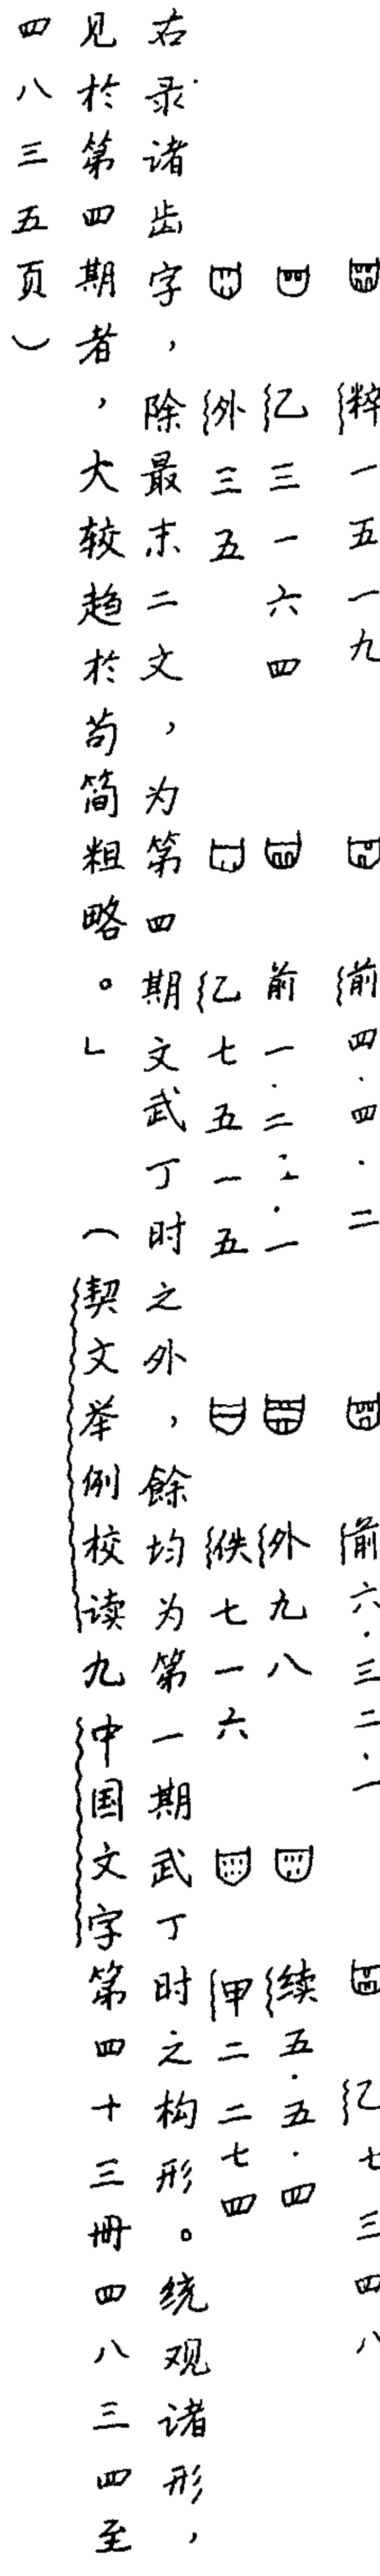 粹一五一九 前四·四·二 前六·三二·一 乙七三四八
乙三一六四 前一·二五·一 外九八 续五·五·四
外三五 乙七五一五 佚七一六 甲二二七四
右录诸齿字，除最末二文，为第四期文武丁时之外，餘均为第一期武丁时之构形。统观诸形，
见於第四期者，大较趋於苟简粗略。」（契文举例校读九中国文字第四十三冊四八三四至
四八三五页）